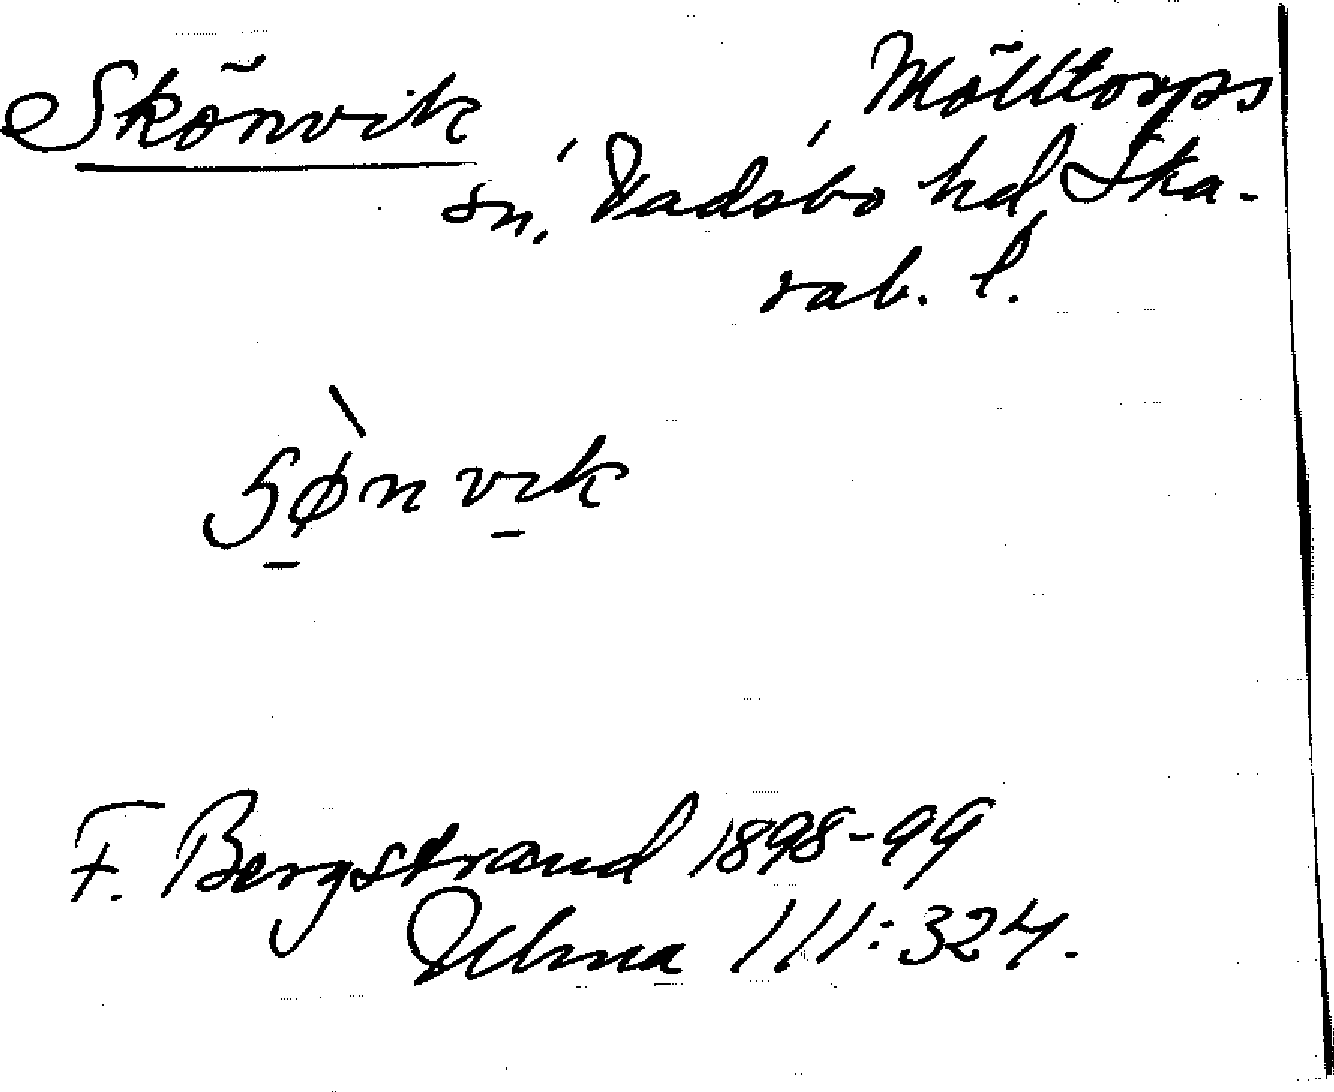 Skönvik
Mölltorps
sn, Vadsbo hd, Ska-
rab. l.
F. Bergstrand 1898-99
111:324.